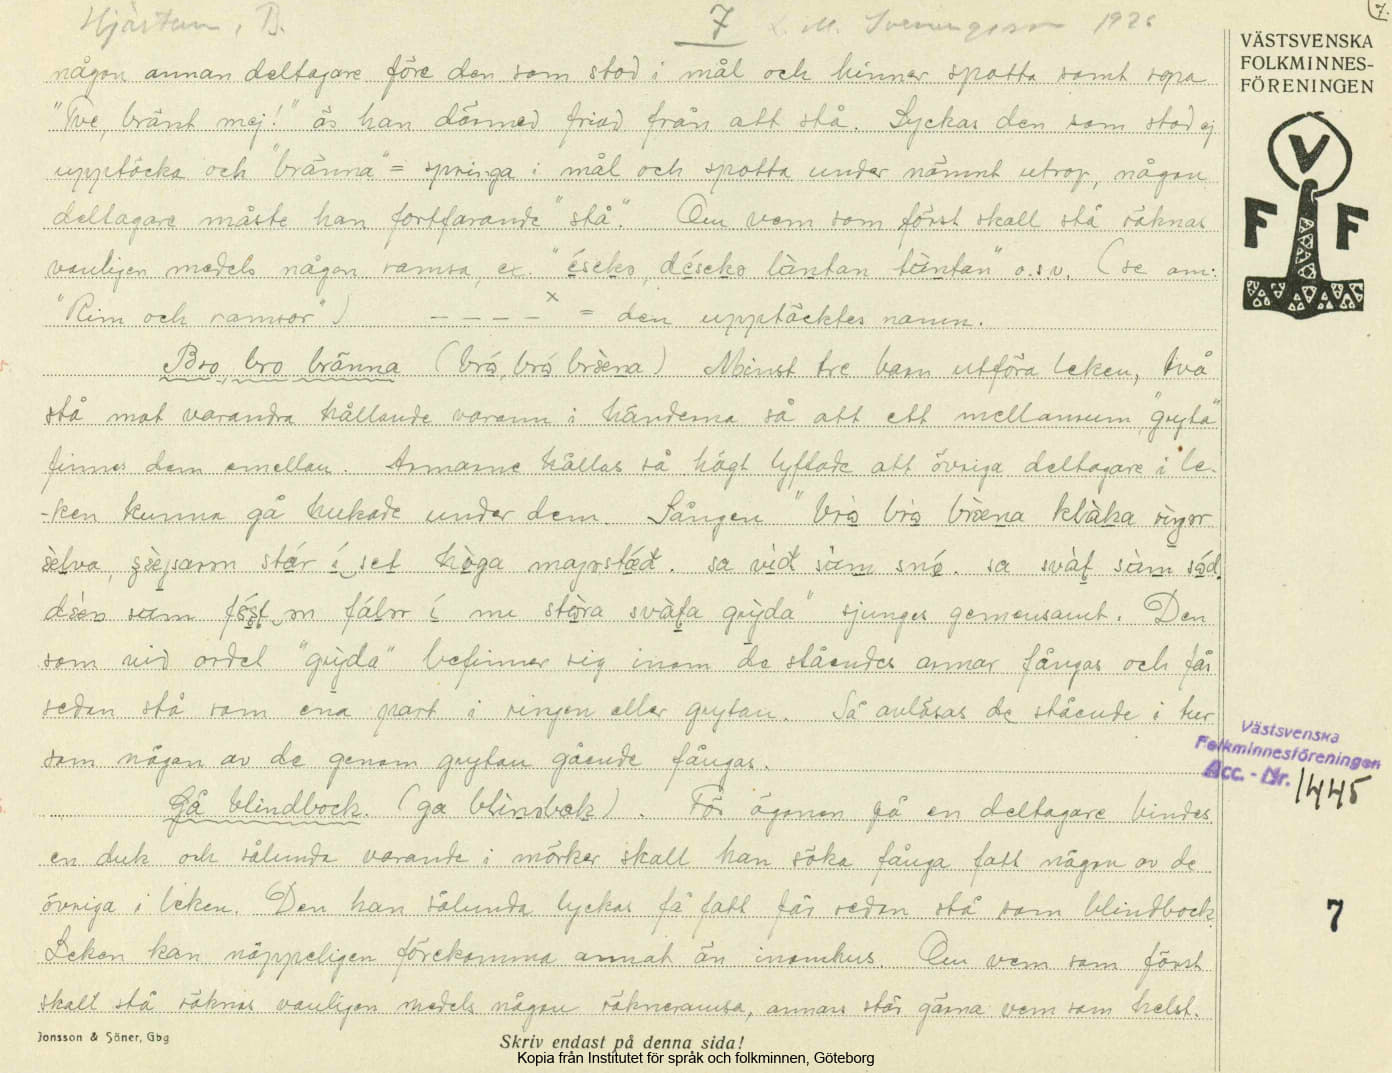 Hjärtum, B. 7 L. M. Svenungsson 1926
7.
någon annan deltagare före den som stod i mål och hinner spotta samt ropa
"Tve, bränt mej!" är han därmed friad från att stå. Lyckas den som stod ej
upptäcka och "bränna" = springa i mål och spotta under nämnt utrop, någon
deltagare måste han fortfarande "stå". Om vem som först skall stå räknas
vanligen medels någon ramsa, ex. "éseko, déseko làntan tàntan" o.s.v. (se om:
"Rim och ramsor") – – – – x = den upptäcktes namn.
Bro, bro bränna (bró, bró brèna) Minst tre barn utföra leken, två
stå mot varandra hållande varann i händerna så att ett mellanrum, "gryta"
finnes dem emellan. Armarne hållas så högt lyftade att övriga deltagare i le-
-ken kunna gå hukade under dem. Sången "brò brò brèna klàka ringer
èlva, står í set hòga majestät. sa vìd sàm snó. sa svàt sàm sód.
sam fálor í me stòra svàta grỳda" sjunges gemensamt. Den
som vid ordet "grỳda" befinner sig inom de ståendes armar fångas och får
sedan stå som ena part i ringen eller grytan. Så avlösas de stående i tur
som någon av de genom grytan gående fångas.
Gå blindbock. (ga blinbok). För ögonen på en deltagare bindes
en duk och sålunda varande i mörker skall han söka fånga fatt någon av de
övriga i leken. Den han sålunda lyckas få fatt får sedan stå som blindbock.
Leken kan näppeligen förekomma annat än inomhus. Om vem som först
skall stå räknas vanligen medels någon räkneramsa, annars står gärna vem som helst.
VÄSTSVENSKA
FOLKMINNES-
FÖRENINGEN
V
F F
Västsvenska
Folkminnesföreningen
Acc. - Nr. 1445
7
Jonsson & Söner, Gbg
Skriv endast på denna sida!
Kopia från Institutet för språk och folkminnen, Göteborg